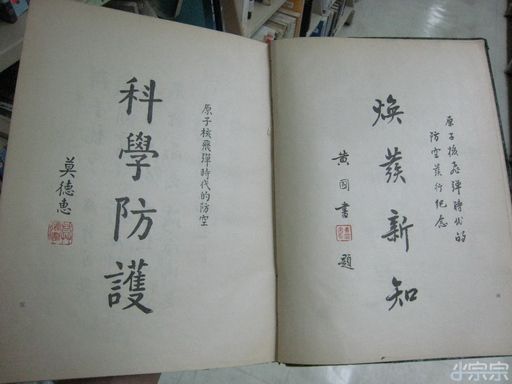 原子核飛彈時代的
防空發行紀念
煥發新知
黃國書
題
原子核飛彈時代的防空
科學防護
莫德惠
小宗宗